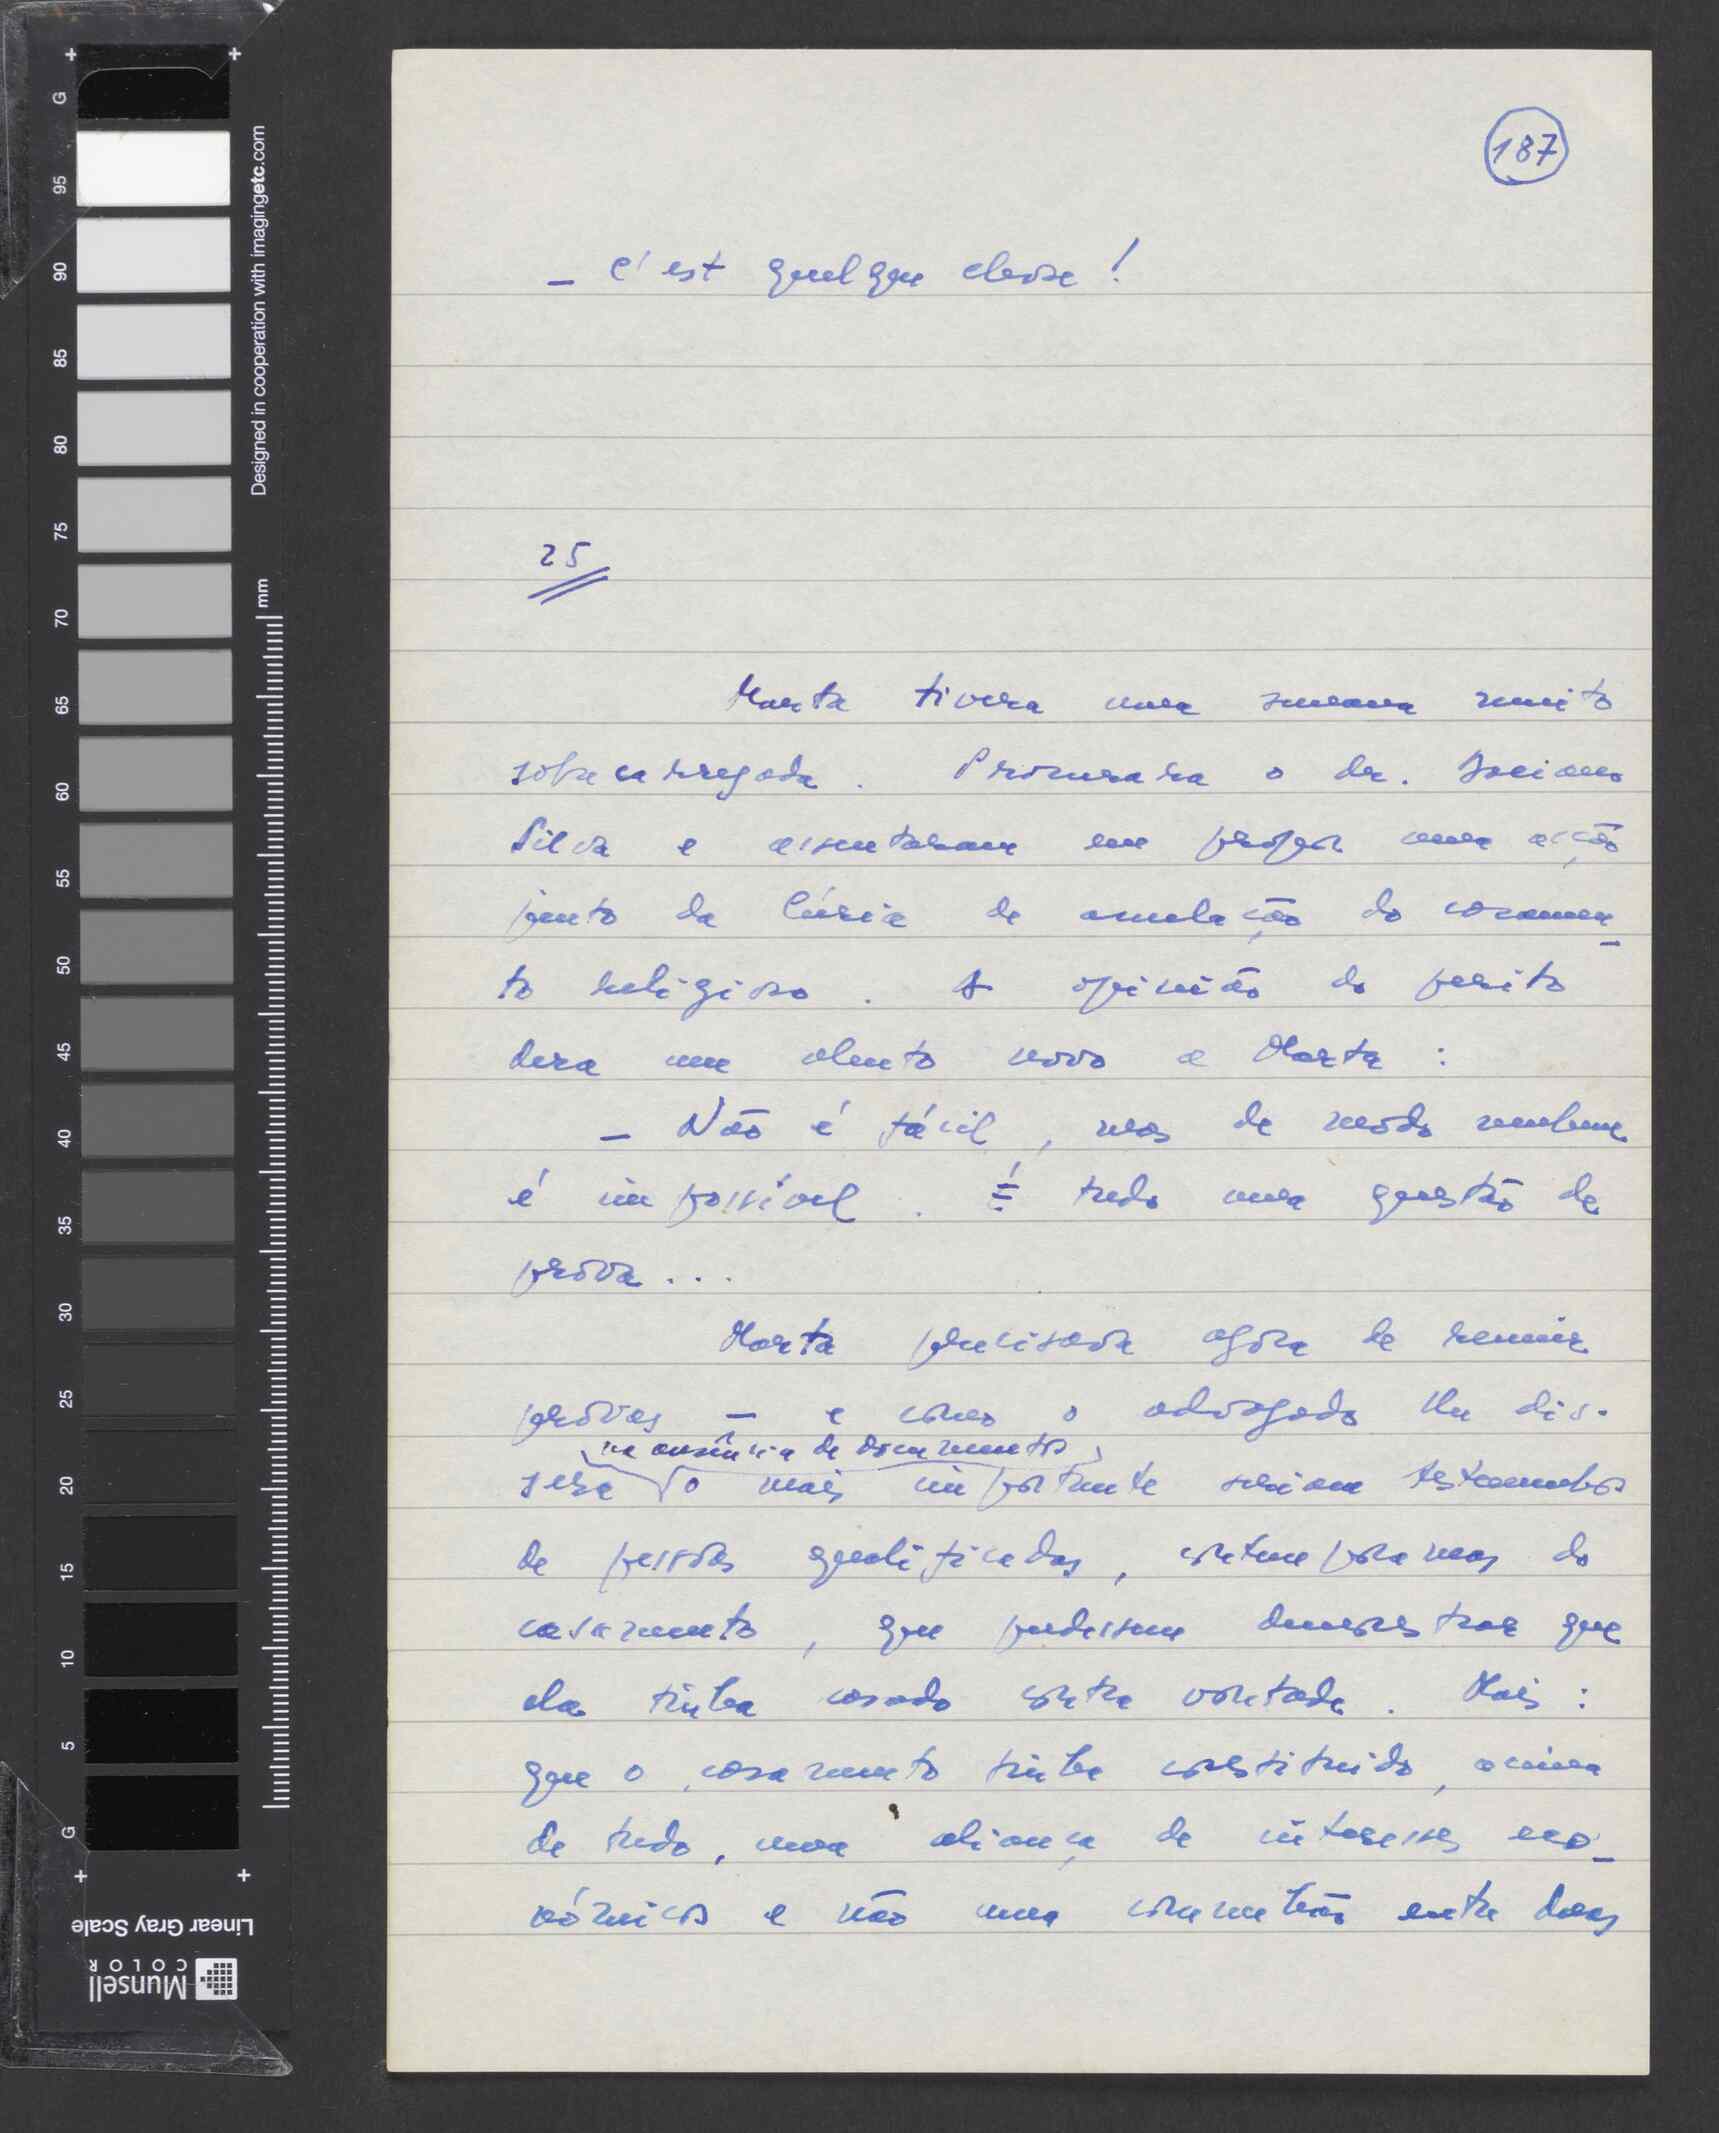 187
– C'est quelque chose !
25
Marta tivera uma semana muito
sobrecarregada. Procurara o dr.
Silva e assentaram em propor uma acção
junto da Cúria de anulação do casamen-
to religioso. A opinião do perito
dera um alento novo a Marta :
– Não é fácil, mas de modo nenhum
é impossível. É tudo uma questão de
prova...
Marta precisava agora de reunir
provas – e como o advogado lhe dis-
, na ausência de documentos,
sera o mais importante seriam testemunhos
de pessoas qualificadas, contemporâneas do
casamento, que pudessem demonstrar que
ela tinha casado contra vontade. Mais :
que o casamento tinha constituido, acima
de tudo, uma aliança de interesses eco-
nómicos e não uma comunhão entre duas
Designed in cooperation with imagingetc.com
mm
G
95
90
85
80
75
70
65
60
55
50
45
40
35
30
25
20
15
10
5
G
Linear Gray Scale
Munsell
COLOR